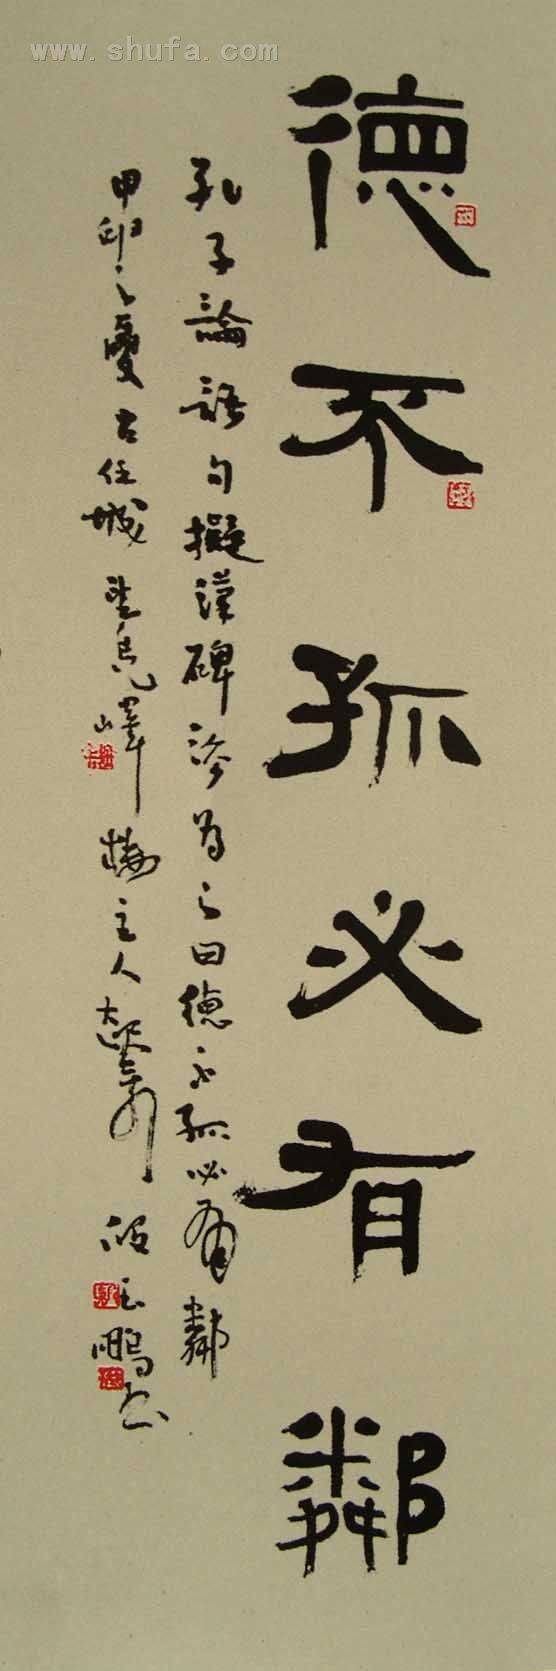 www.shufa.com
德不孤必有鄰
孔子論語句擬漢碑 為之曰德不孤必有鄰
甲申之夏古任城 嶧 樓主人 段玉鵬